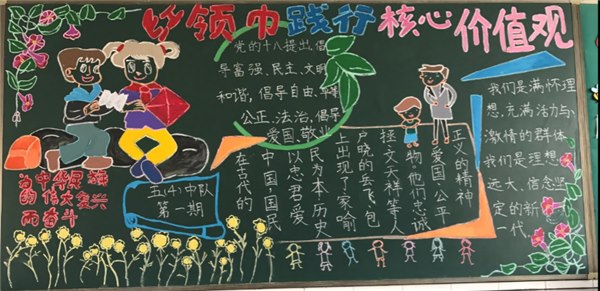 红领巾践行核心价值观
党的十八提出,倡
导富强、民主、文明、
和谐,倡导自由、平等
公正、法治,倡导
爱国、敬业
在古代的
中国,国民
以忠君、爱
民为本.历史
上出现了家喻
户晓的岳飞、包
拯、文天祥等人
物他们忠诚
爱国、公平
正义的精神
我们是满怀理
想,充满活力与
激情的群体
我们是理想
远大、信念坚
定的新一
代
为中华民族
的伟大复兴
而奋斗
五(4)中队
第一期